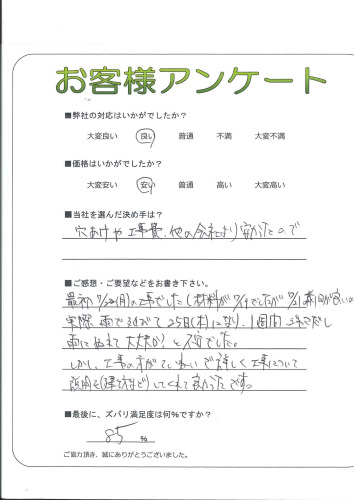 お客様アンケート
■弊社の対応はいかがでしたか?
大変良い 良い 普通 不満 大変不満
■価格はいかがでしたか?
大変安い 安い 普通 高い 大変高い
■当社を選んだ決め手は?
穴あけや工事費、他の会社より安かったので
■ご感想・ご要望などをお書き下さい。
最初 (月)の工事でした(材料が
実際 雨で 25日(木)になり、1週間
雨にぬれて大丈夫か?と不安でした。
しかし、工事の方がていねいで詳しく工事について
説明も してくれて良かったです。
■最後に、ズバリ満足度は何%ですか?
85 %
ご協力頂き、誠にありがとうございました。